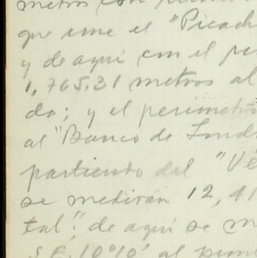 metros con
que une el "Picach
y de aquí con el pu
1,765.31 metros al
do; y el perimetro
al "Banco de
partiendo del "Ve
se medirán 12,41
tal"; de aquí se m
S.E. 10°10' al pun